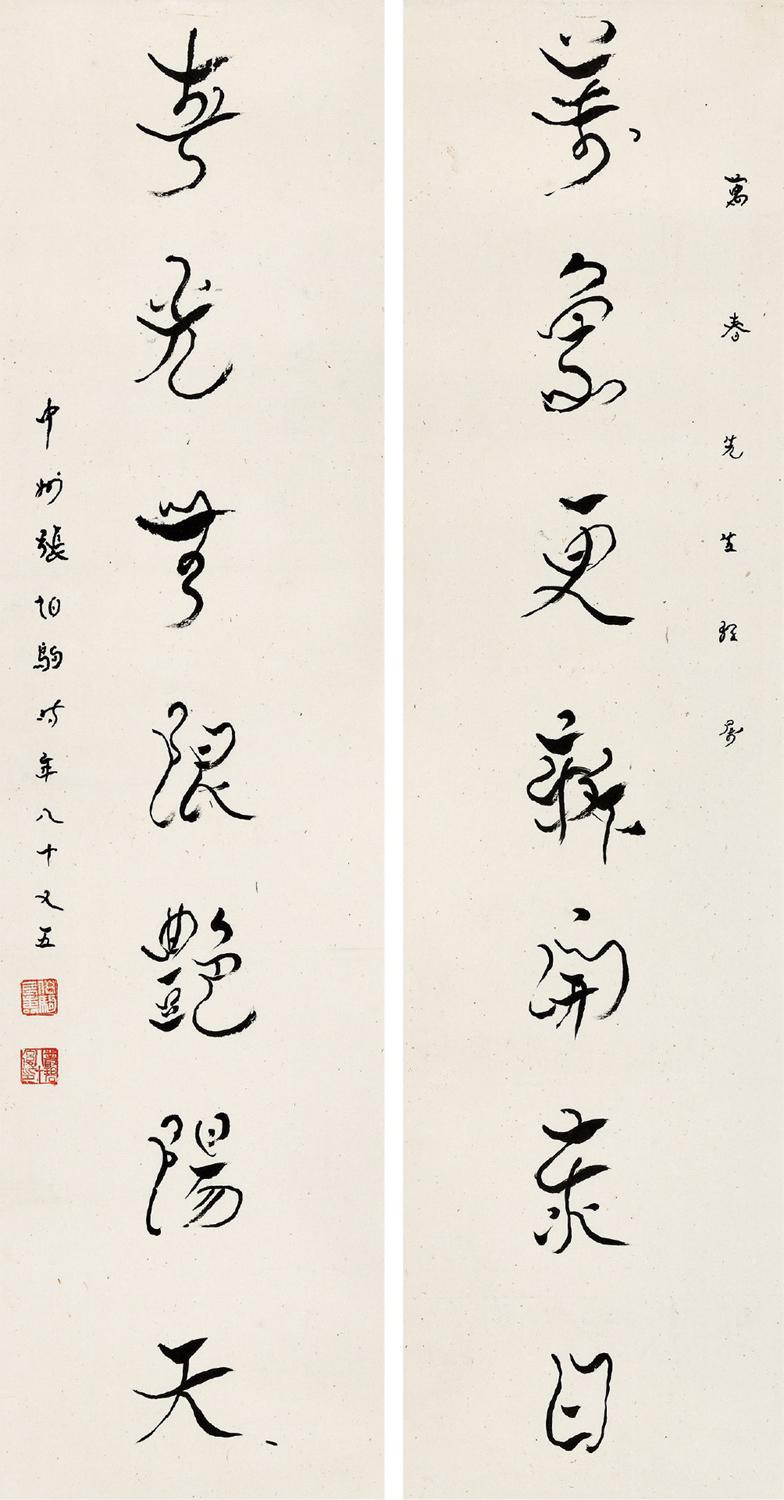 萬春先生雅屬
萬象更新開泰日
春光無限艷陽天
中州張伯駒時年八十又五